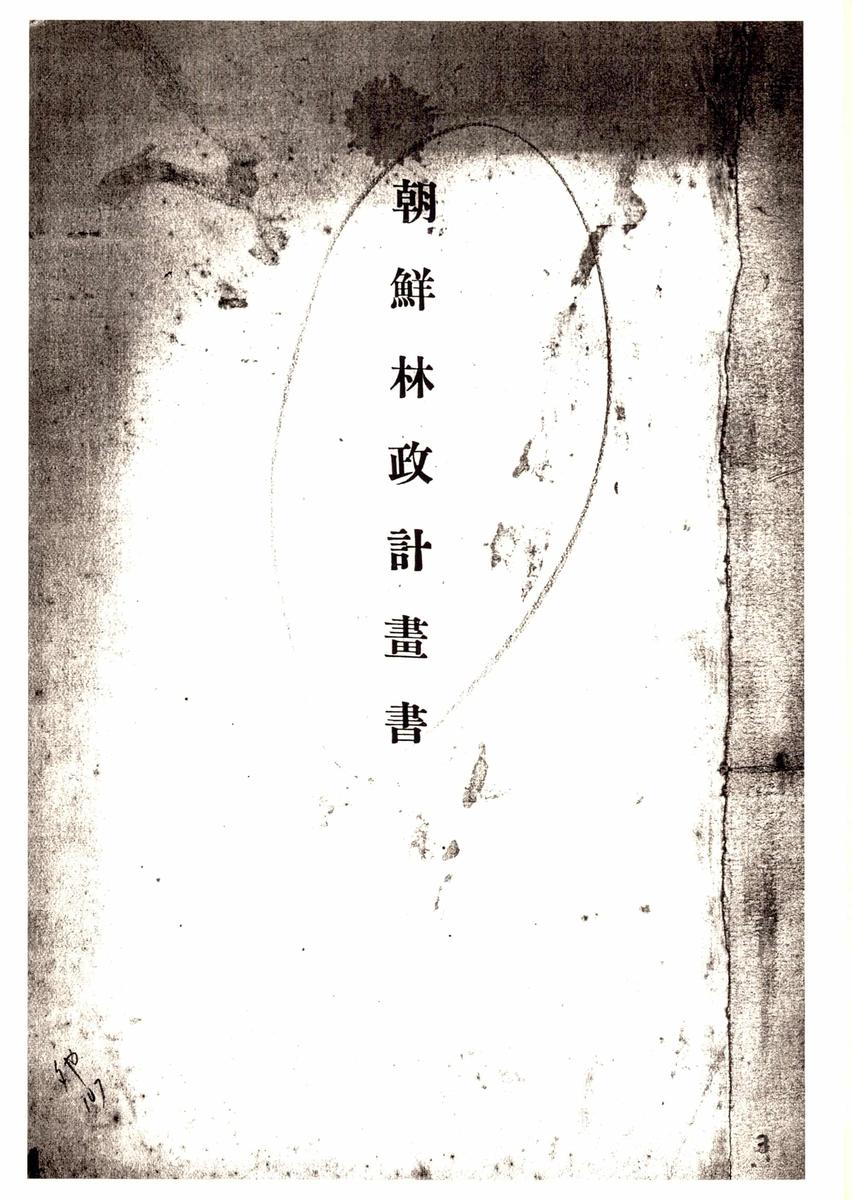 朝鮮林政計畫書
107
3